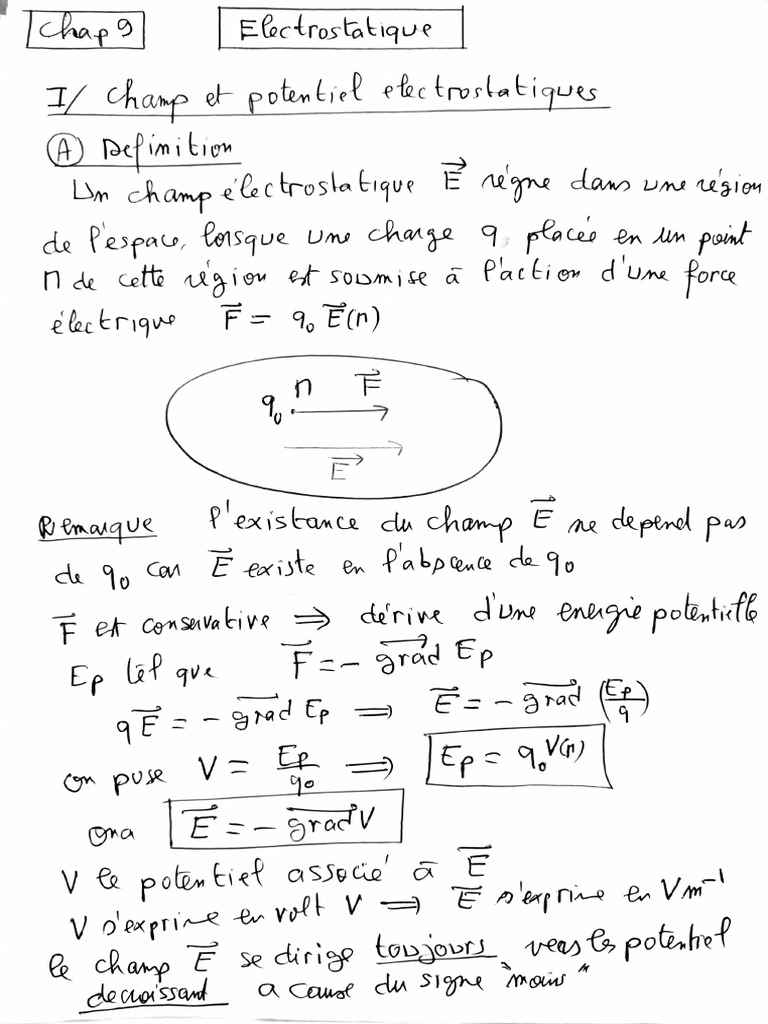 Chap 9 Electrostatique
I/ champ et potentiel electrostatiques
(A) Definition
Un champ électrostatique \vec{E} règne dans une région
de l'espace, lorsque une charge q placée en un point
M de cette région est soumise à l'action d'une force
électrique \vec{F} = q₀ \vec{E}(M)
q₀ M \vec{F}
\vec{E}
Remarque l'existance du champ \vec{E} ne depend pas
de q₀ car \vec{E} existe en l'abscence de q₀
\vec{F} est conservative ⟹ dérive d'une energie potentielle
Ep tel que \vec{F} = - \overrightarrow{grad} Ep
q\vec{E} = - \overrightarrow{grad} Ep ⟹ \vec{E} = - \overrightarrow{grad} (Ep/q)
on pose V = Ep/q₀ ⟹ Ep = q₀V(M)
ona \vec{E} = - \overrightarrow{grad}V
V le potentiel associé à \vec{E}
V s'exprime en volt V ⟹ \vec{E} s'exprime en Vm⁻¹
le champ \vec{E} se dirige toujours vers les potentiel
decroissant a cause du signe "moins"